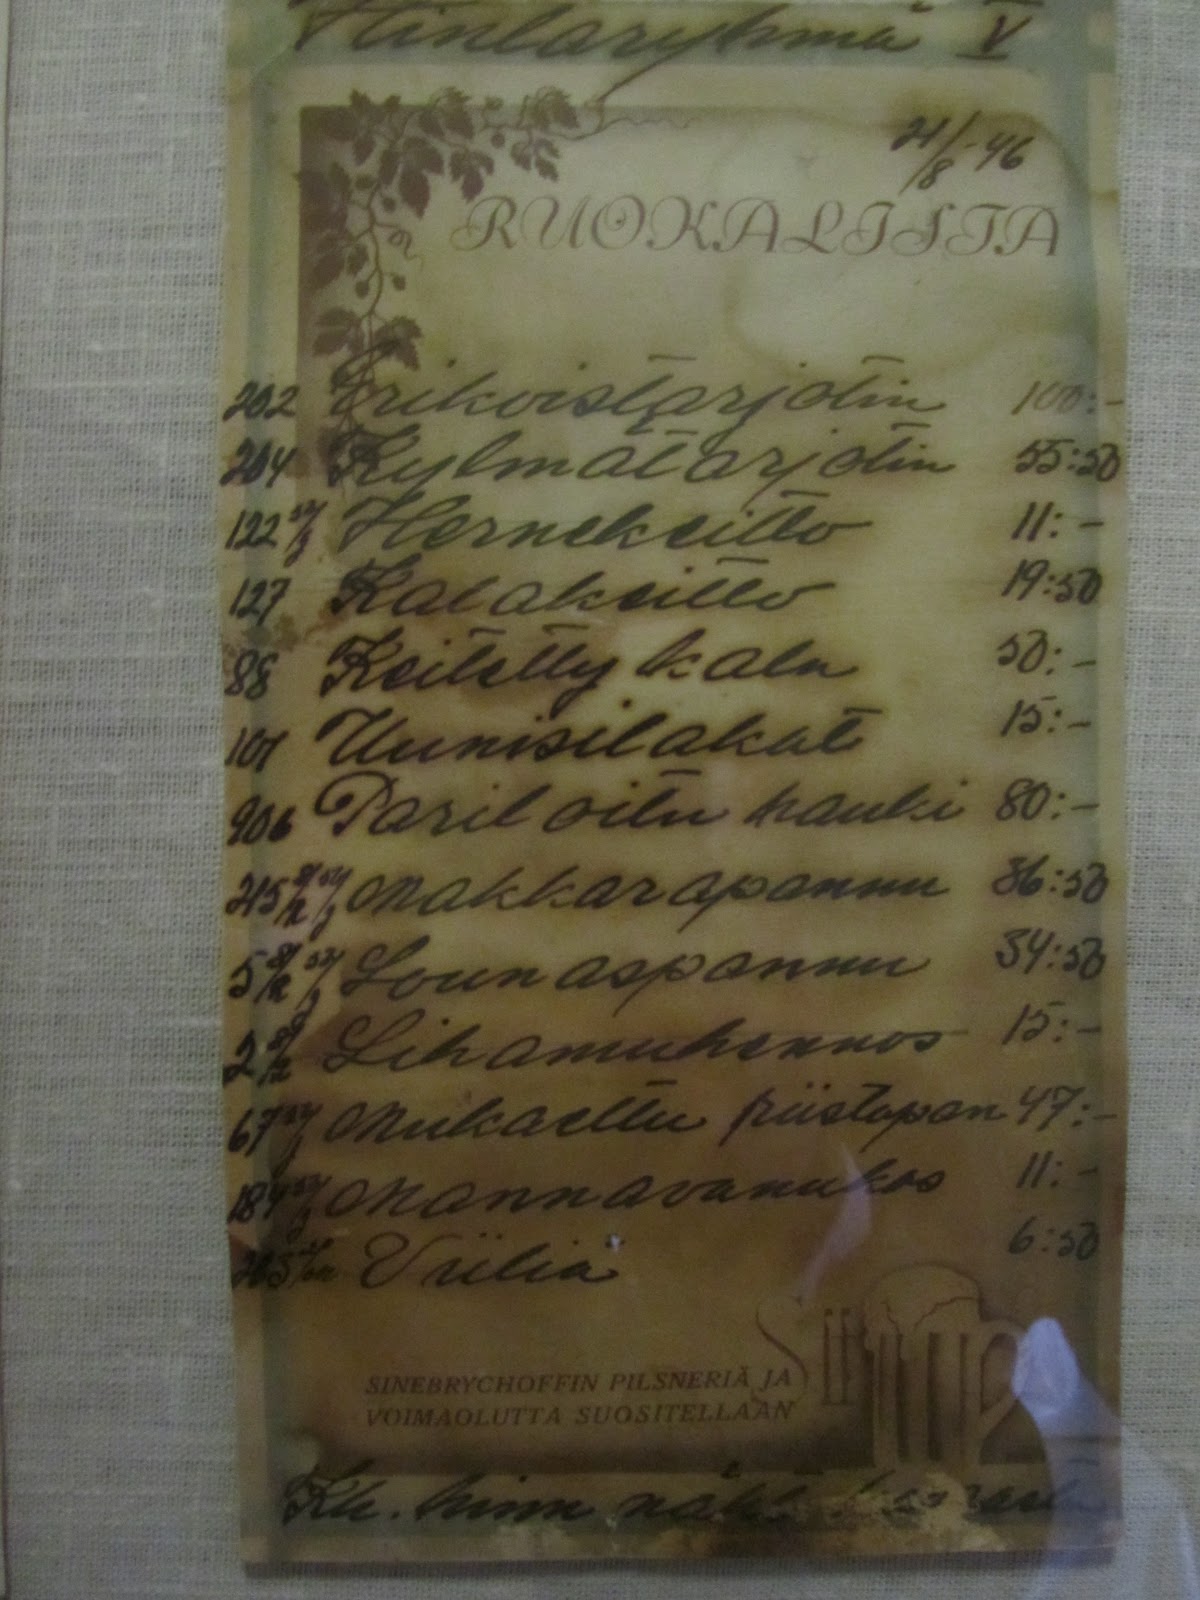 Hintaryhmä V
21/8-46
RUOKALISTA
202 Erikoistarjotin 100:-
204 Kylmätarjotin 55:50
122 Hernekeitto 11:-
127 Kalakeitto 19:50
88 Keitetty kala 50:-
101 Uunisilakat 15:-
906 Pariloitu hauki 80:-
215 Makkarapannu 36:50
5 Lounaspannu 34:50
2 Lihamuhennos 15:-
67 Mukaeltu riistapan 47:-
184 Mannavanukas 11:-
205 Viiliä 6:50
SINEBRYCHOFFIN PILSNERIÄ JA
VOIMAOLUTTA SUOSITELLAAN
Kh. hinn